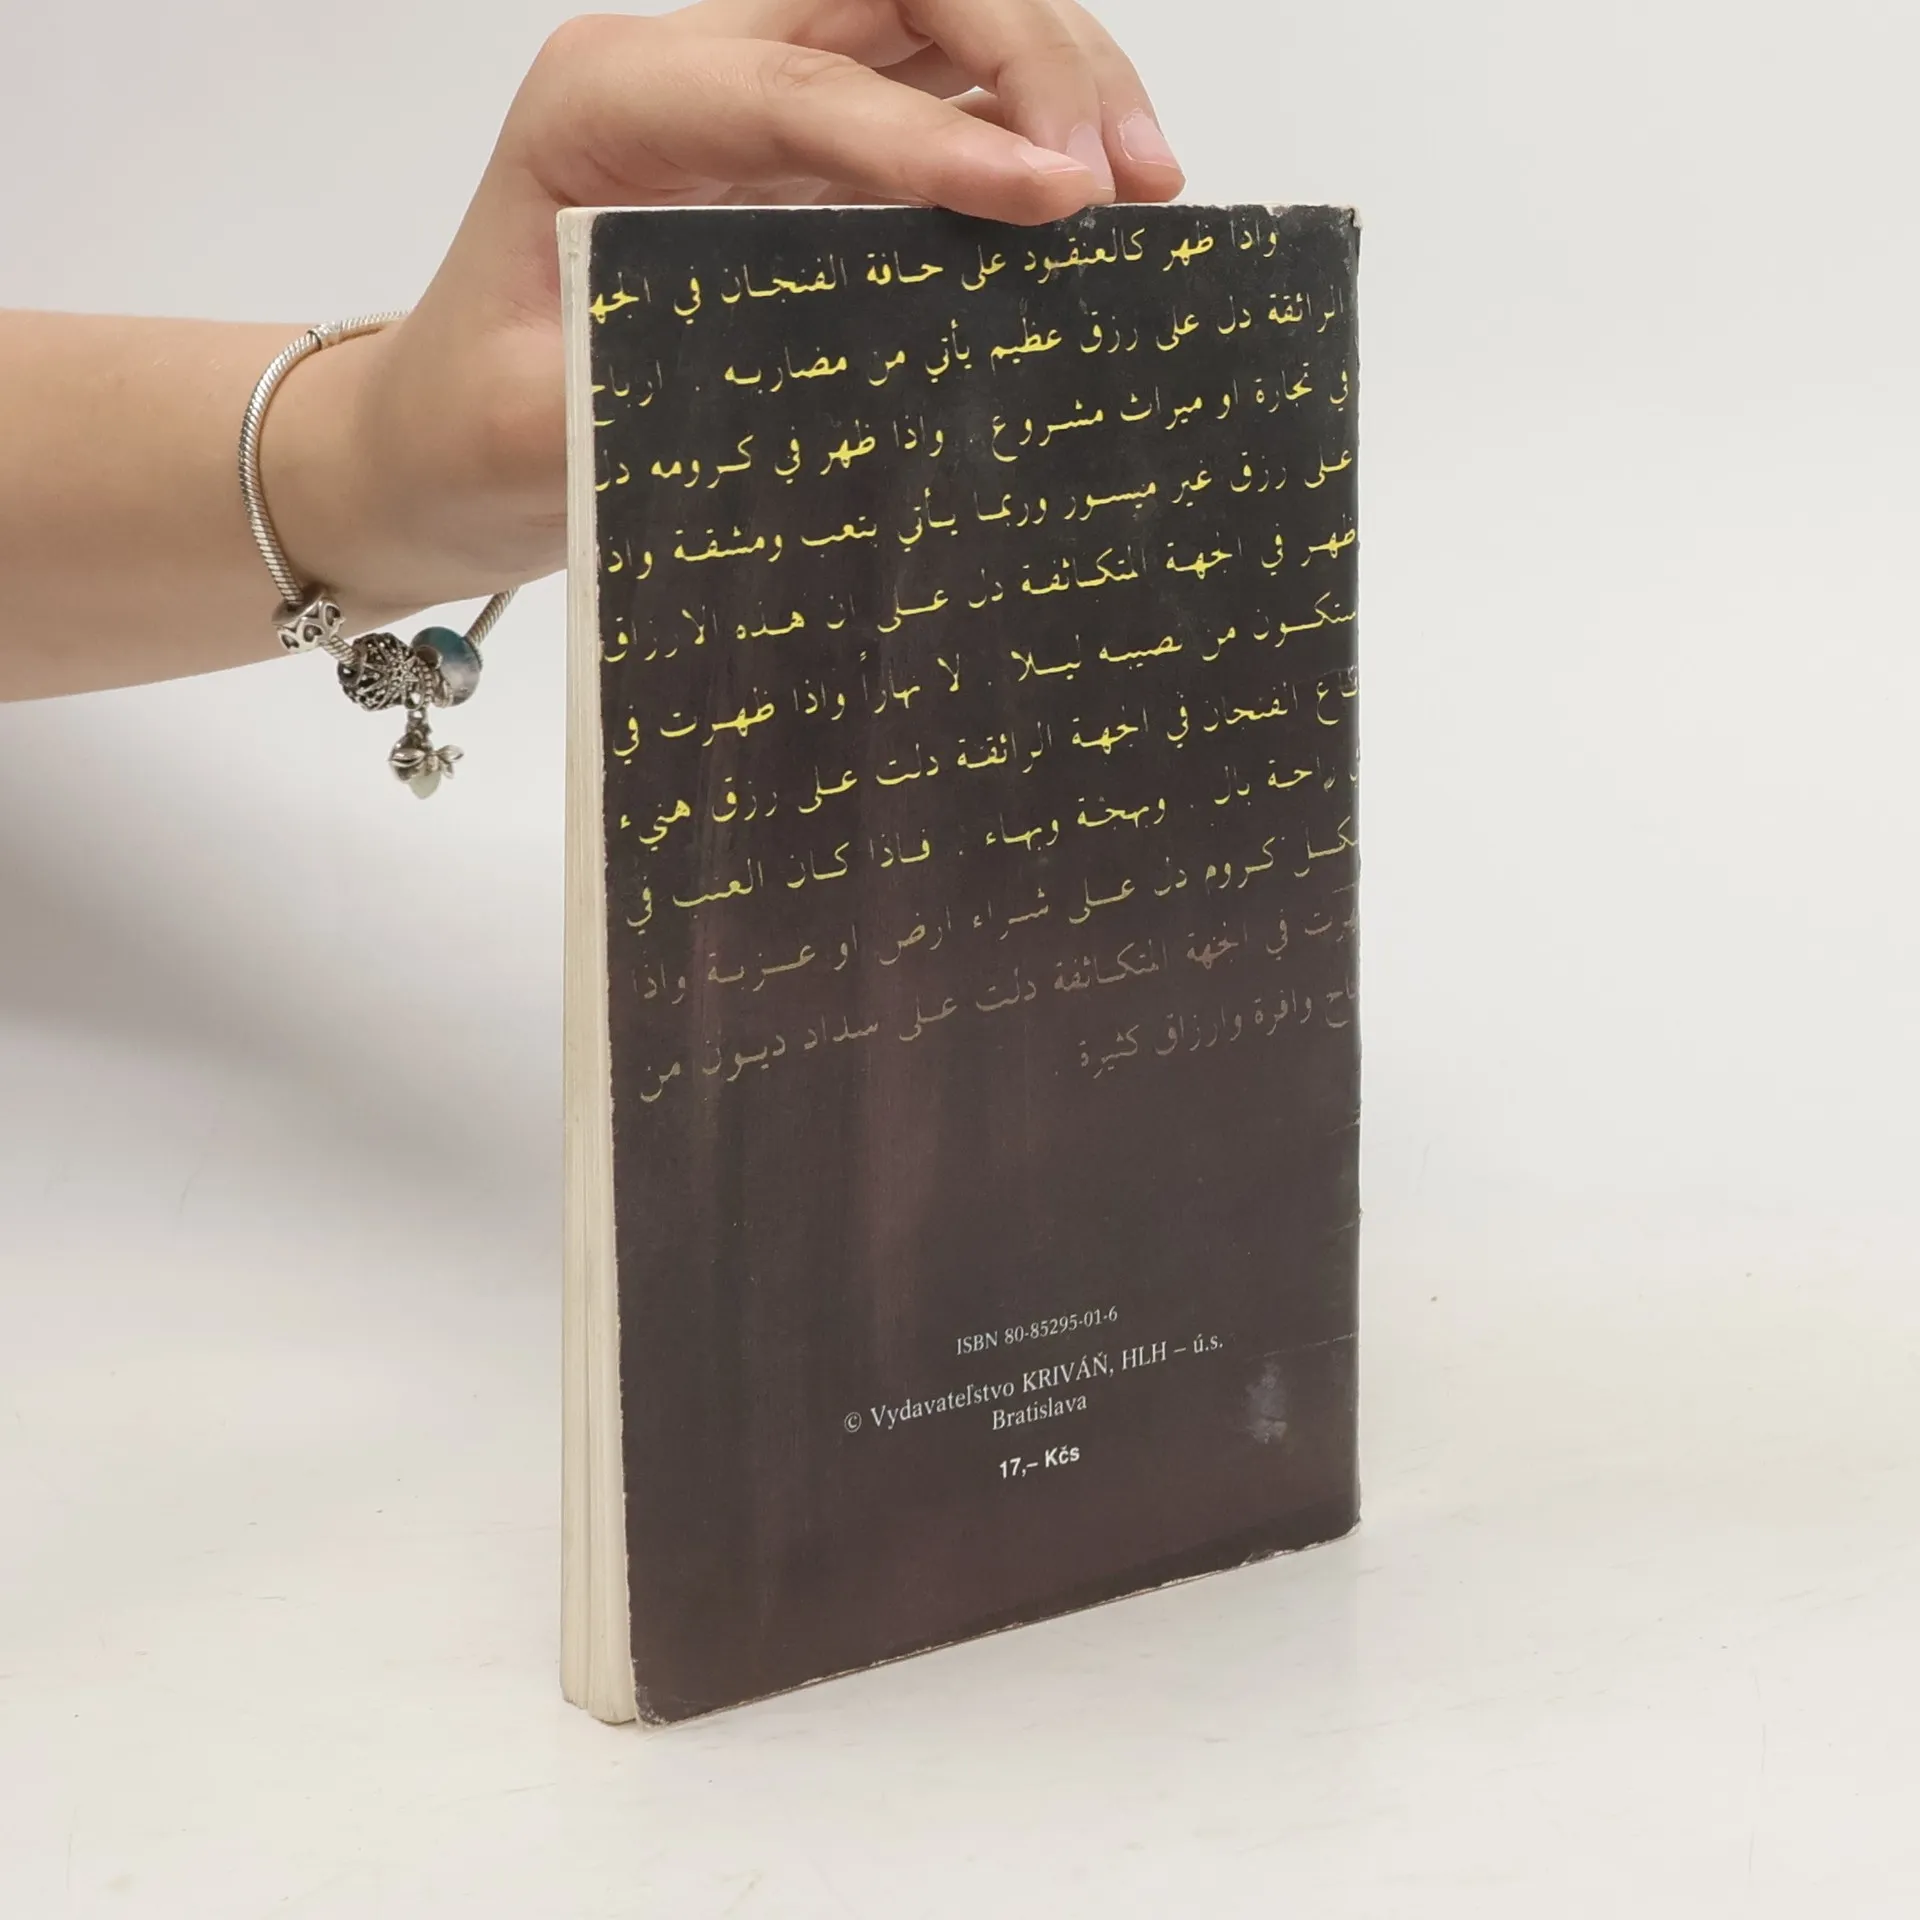 واذا ظهر كالعنقود على حافة الفنجان في الجه
الرائقة دل على رزق عظيم يأتي من مضاربه . ارباح
في تجارة او ميراث مشروع . واذا ظهر في كرومه دل
على رزق غير ميسور وربما يأتي بتعب ومشقة واذ
ظهر في الجهة المتكاثفة دل على ان هذه الارزاق
ستكون من نصيبه ليلا . لا نهاراً واذا ظهرت في
قاع الفنجان في الجهة الرائقة دلت على رزق هنيء
راحة بال . وبهجة وبهاء . فاذا كان العنب في
كل كروم دل على شراء ارض او عزبة واذا
في الجهة المتكاثفة دلت على سداد ديون من
وافرة وارزاق كثيرة .
ISBN 80-85295-01-6
© Vydavateľstvo KRIVÁŇ, HLH – ú.s.
Bratislava
17,– Kčs